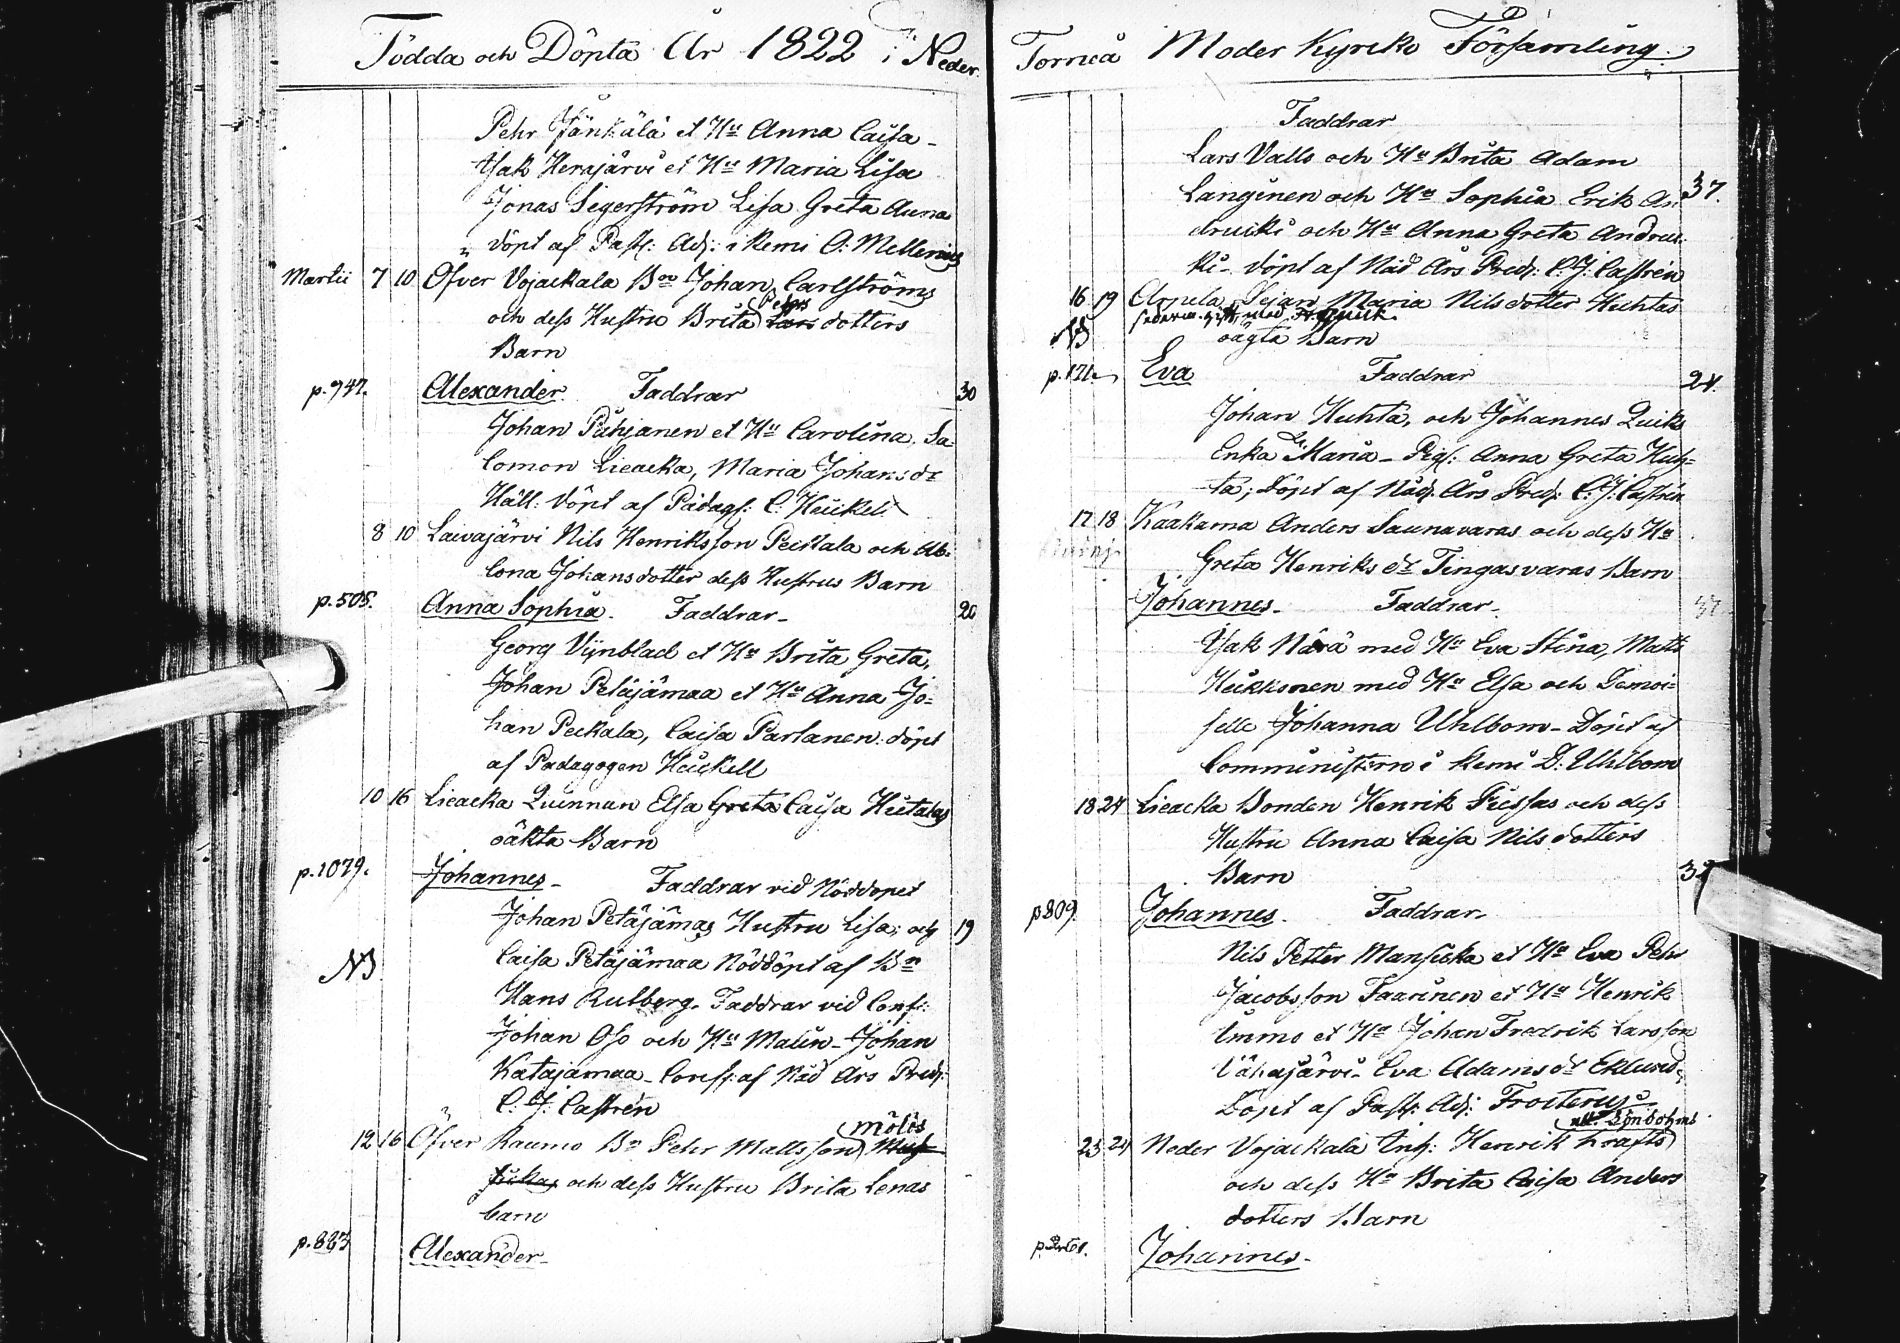 Födda och Döpta År 1822 i Neder
Pehr Jänkälä et Hu Anna Caisa
Isak Herajärvi et Hu Maria Lisa
Jonas Segerström Lisa Greta Anna
döpt af Past: Adj: i Kemi O: Mellenius
Martii 7 10 Öfver Vojackala Bon Johan Carlströms
och dess Hustru Brita Lars dotters
Barn
p. 947. Alexander. Faddrar 30
Johan Puhjanen et Hu Carolina Sa-
lomon Lieacka, Maria Johans dr
Häll: döpt af Pädag: C: Heickell
8 10 Laivajärvi Nils Henriksson Peckala och Ab-
lona Johansdotter dess Hustrus Barn
p. 505. Anna Sophia. Faddrar 20
Georg Vijnblad et Hu Brita Greta,
Johan Petäjämaa et Hu Anna Jo-
han Peckala, Caisa Parlanen. döpt
af Padagogen Heickell
10 16 Lieacka Quinnan Elsa Greta Caisa Hietalas
oäkta Barn
p. 1079. Johannes Faddrar vid Nöddopet
Johan Petäjämas Hustru Lisa; och 19
NB Caisa Petäjämaa Nöddöpt af Bn
Hans Rutberg. Faddrar vid Conf:
Johan Ojo och Hu Malin Johan
Katajamaa Conf: af Näd Års Pred:
C: J: Castrén
mölös
12 16 Öfver Raumo Bn Pehr Matsson
och dess Hustru Brita Lenas
barn
p. 883 Alexander
Torneå Moder Kyrko Församling.
Faddrar
Lars Valls och Hu Brita Adam
Langinen och Hu Sophia Erik An- 37.
drucki och Hu Anna Greta Andru-
ki döpt af Näd Års Pred: C: J: Castrén
16 19 Arpela Pejan Maria Nilsdotter Huhtas
NB oägta Barn
Eva Faddrar 24.
Johan Huhta, och Johannes Quiks
Enka Maria Pig: Anna Greta Huh-
ta; döpt af Näd: Års Pred: C: J: Castrén
17 18 Kaakama Anders Saunavaras och dess Hu
Greta Henriks dr Tingasvaras Barn
Johannes Faddrar 37
Isak Närä med Hu Eva Stina, Matts
Heikkonen med Hu Elsa och Demoi-
selle Johanna Uhlbom Döpt af
Comministern i Kemi D: Uhlbom
18 24 Lieacka Bonden Henrik Fiessas och dess
Hustru Anna Caisa Nils dotters
Barn
p 809 Johannes. Faddrar
Nils Petter Mansicka et Hu Eva Pehr
Jacobsson Taarinen et Hu Henrik
Immo et Hu Johan Fredrik Larsson
Vähäjärvi Eva Adams dr Eklund
Döpt af Past: Adj: Frosterus
23 24 Neder Vojackala Inh: Henrik Krafts
och dess Hu Brita Caisa Anders
dotters Barn
Johannes